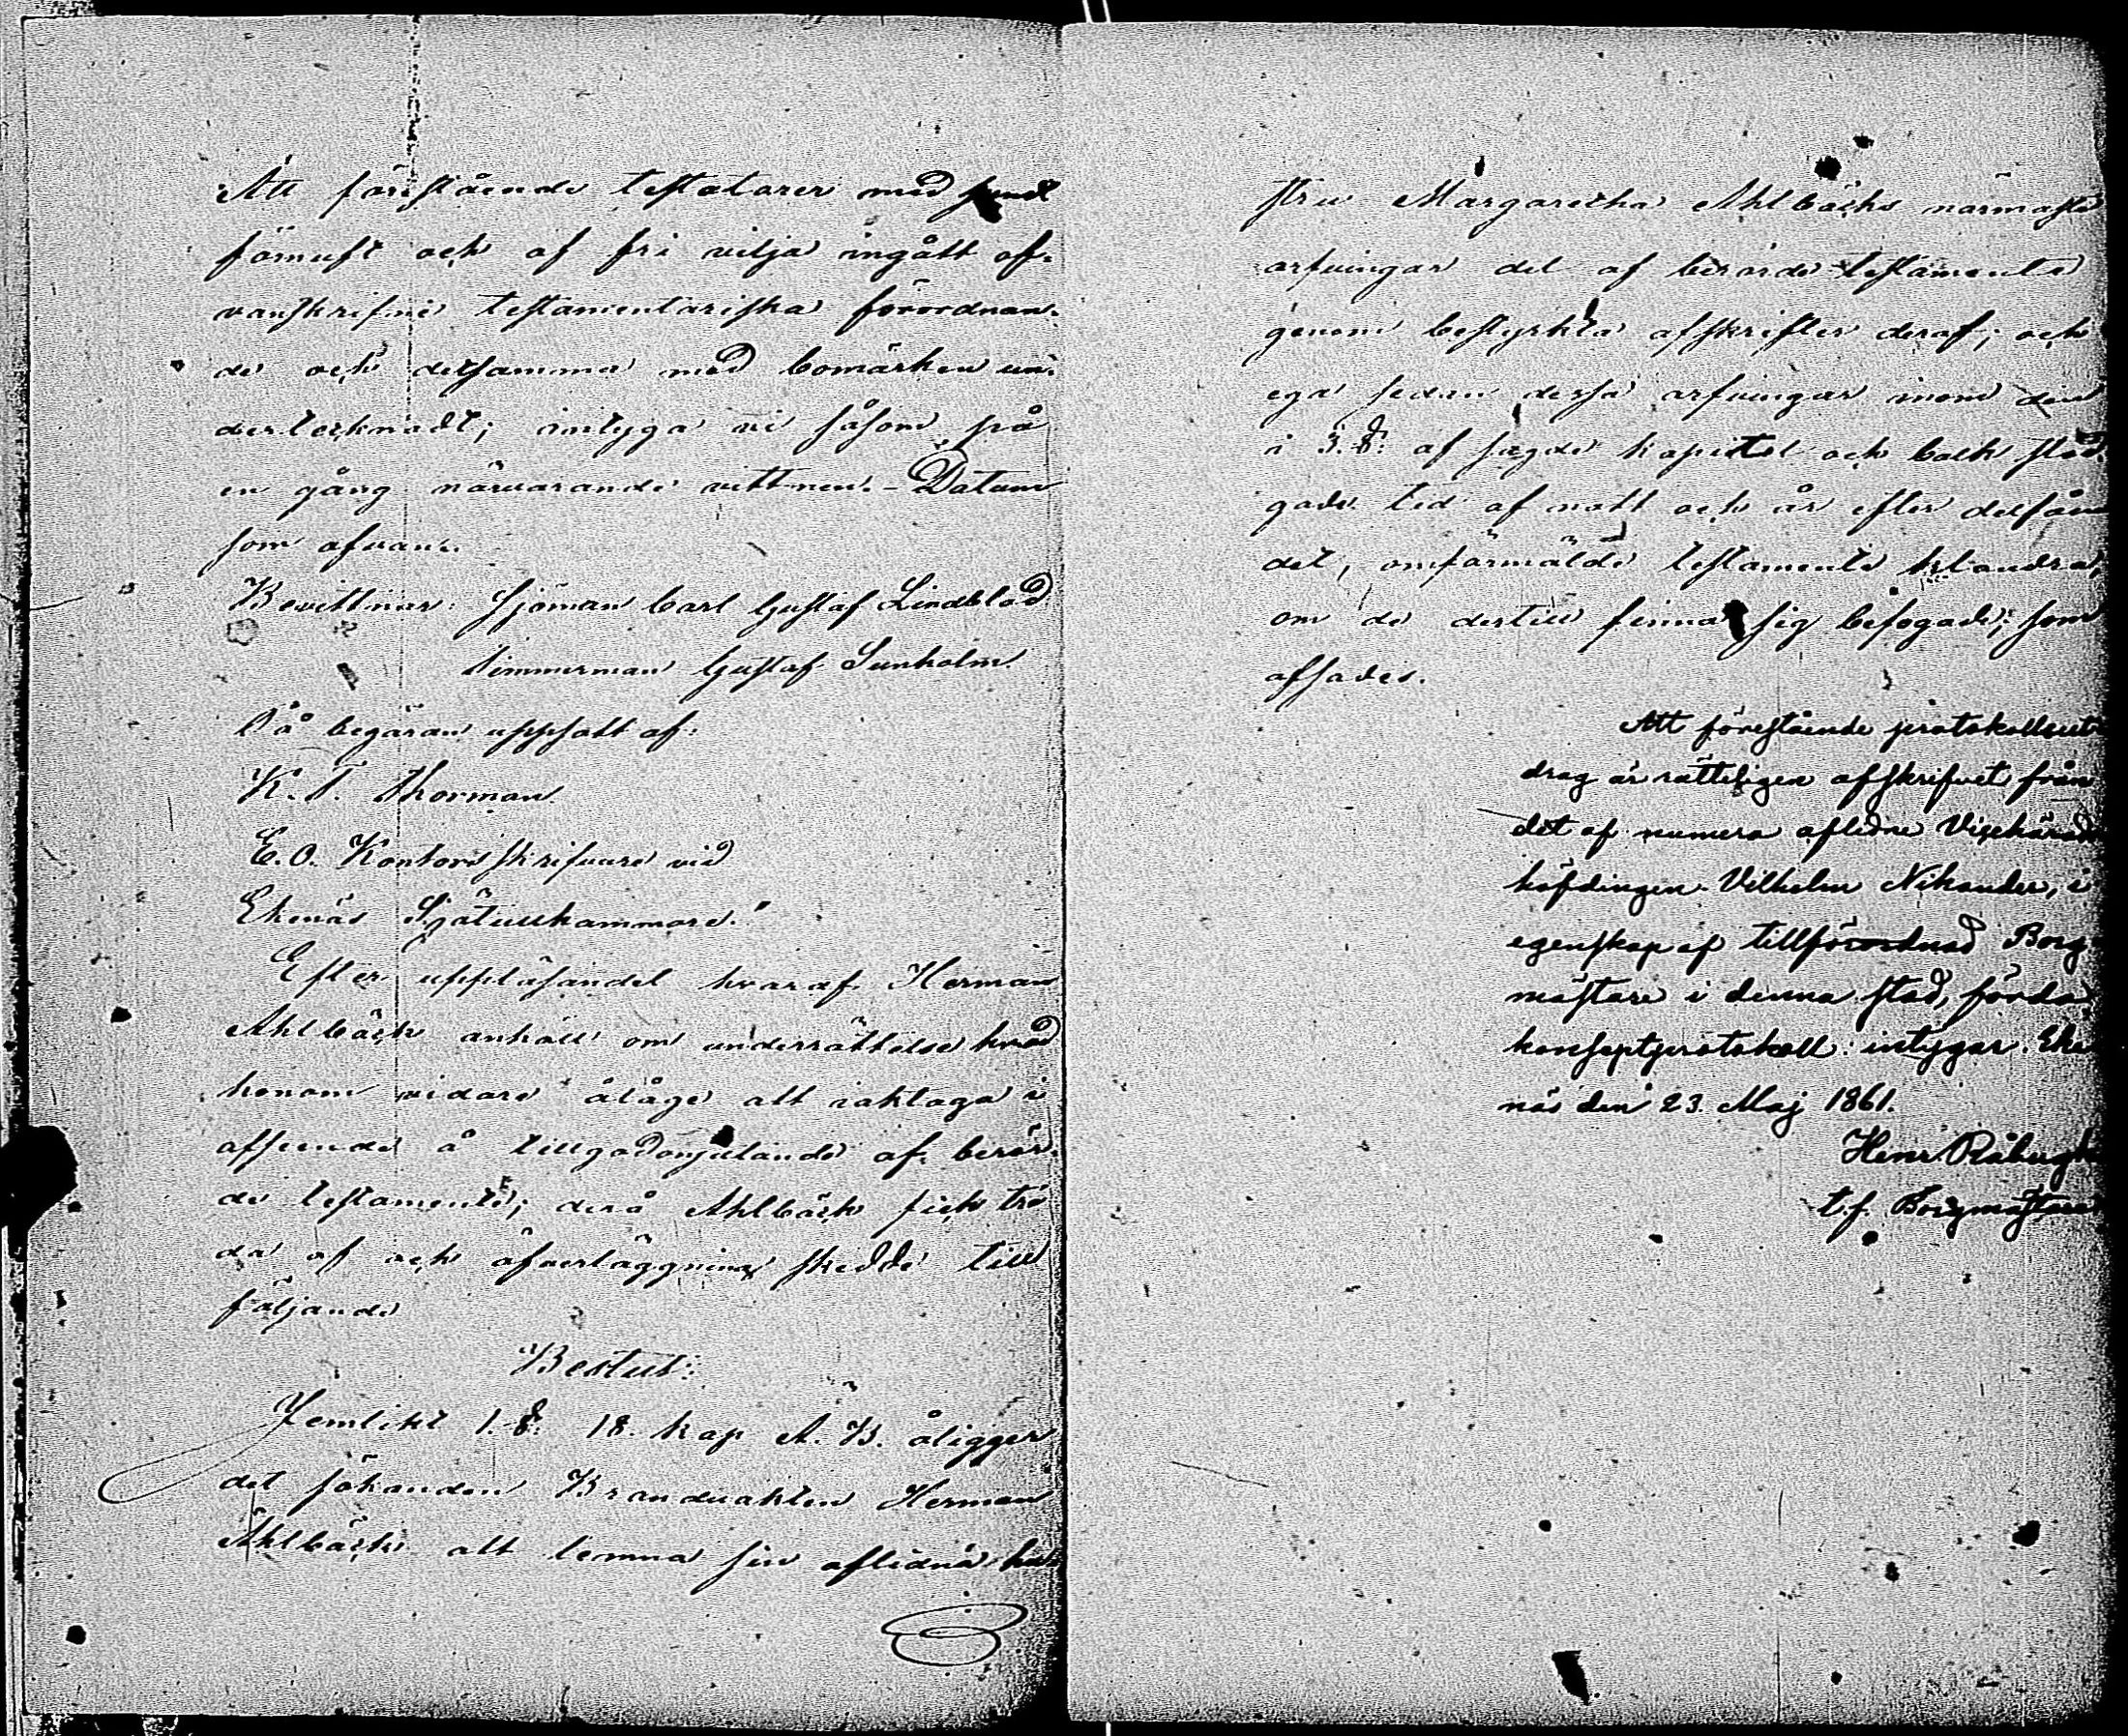 Att föreståendе testatorer med sundt
förnuft och af fri vilja ingått of-
vanskrifne testamentariska förordnan-
de och detsamma med bomärken un-
dertecknadt; intyga vi såsom på
en gång närvarande vittnen. - Datum
som ofvan.
Bevittnar: Sjöman Carl Gustaf Lindblad
Timmerman Gustaf Sunholm.
På begäran uppsatt af:
K. T. Thorman.
E. O. Kontorsskrifvare vid
Ekenäs Sjötullkammare."
Efter uppläsandet hvaraf Herman
Ahlbäck anhöll om underrättelse hvad
honom vidare ålåge att iakttaga i
afseende å tillgodonjutande af berör-
de testamente; derå Ahlbäck fick trä-
da af och öfverläggning skedde till
följande
Beslut:
Jemlikt 1. §. 18. kap Ä. B. åligger
det sökanden Brandvakten Herman
Ahlbäck att lemna sin aflidna hu-
stru Margaretha Ahlbäcks närmaste
arfvingar del af berörde testamente
genom bestyrkta afskrifter deraf; och
ega sedan dessa arfvingar inom den
i 3. §. af sagde kapitel och balk stad-
gade tid af natt och år efter delfåen-
det, omförmälde testamente klandra,
om de dertill finna sig befogade; som
afsades.
Att förestående protokollsut-
drag är rätteligen afskrifvet från
det af numera aflidne Vicehärads-
höfdingen Vilhelm Nikander, i
egenskap af tillförordnad Borg-
mästare i denna stad, förda
konseptprotokoll: intygar. Eke-
näs den 23. Maj 1861.
Henr
t.f. Borgmästare